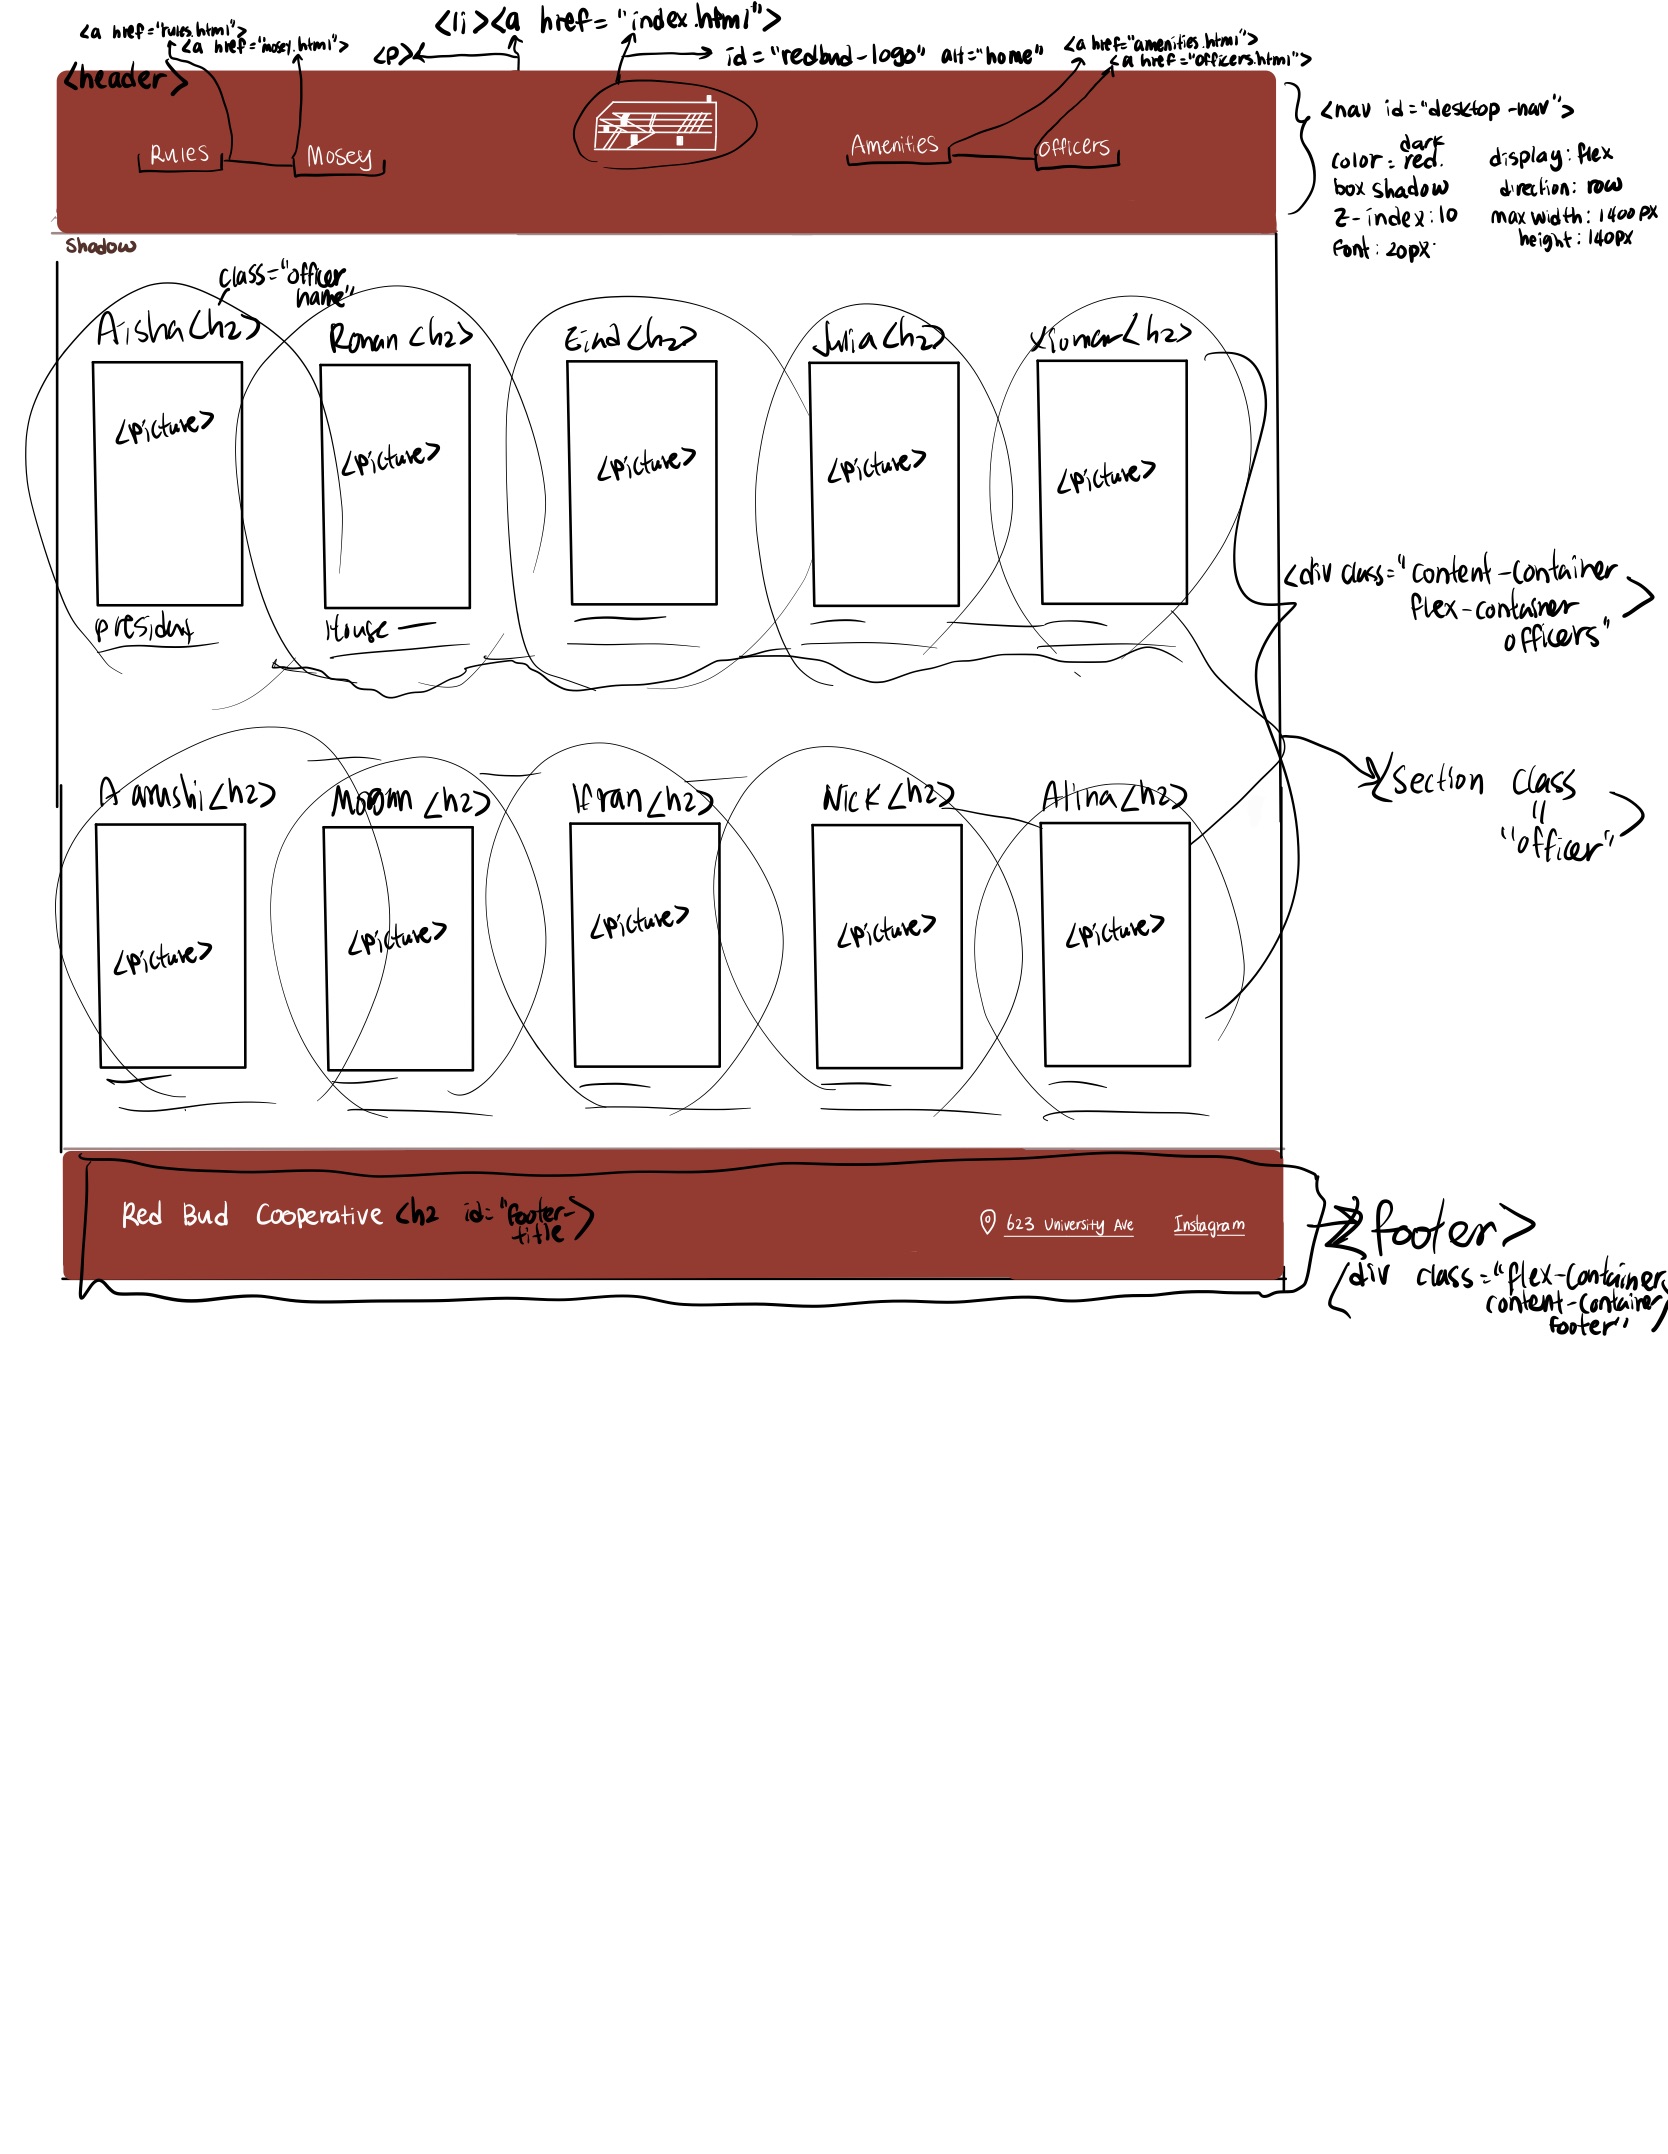 <li><a href="index.html">
<a href="rules.html">
<a href="mosey.html">
<p>
id="redbud-logo" alt="home"
<a href="amenities.html">
<a href="officers.html">
<header>
Rules
Mosey
Amenities
Officers
<nav id="desktop-nav">
color: dark red.
box shadow
z-index:10
font: 20px
display: flex
direction: row
max width: 1400px
height: 140px
Shadow
class="officer
name"
Aisha <h2>
Ronan <h2>
<h2>
Julia <h2>
Xiomar <h2>
<picture>
<picture>
<picture>
<picture>
<picture>
president
House
<div class="content-container
flex-container
officers">
<section class
=
"officer">
Aarushi <h2>
<h2>
Ifran <h2>
Nick <h2>
Alina <h2>
<picture>
<picture>
<picture>
<picture>
<picture>
Red Bud Cooperative <h2 id="footer-
title>
623 University Ave
Instagram
<footer>
<div class="flex-container,
content-container,
footer">